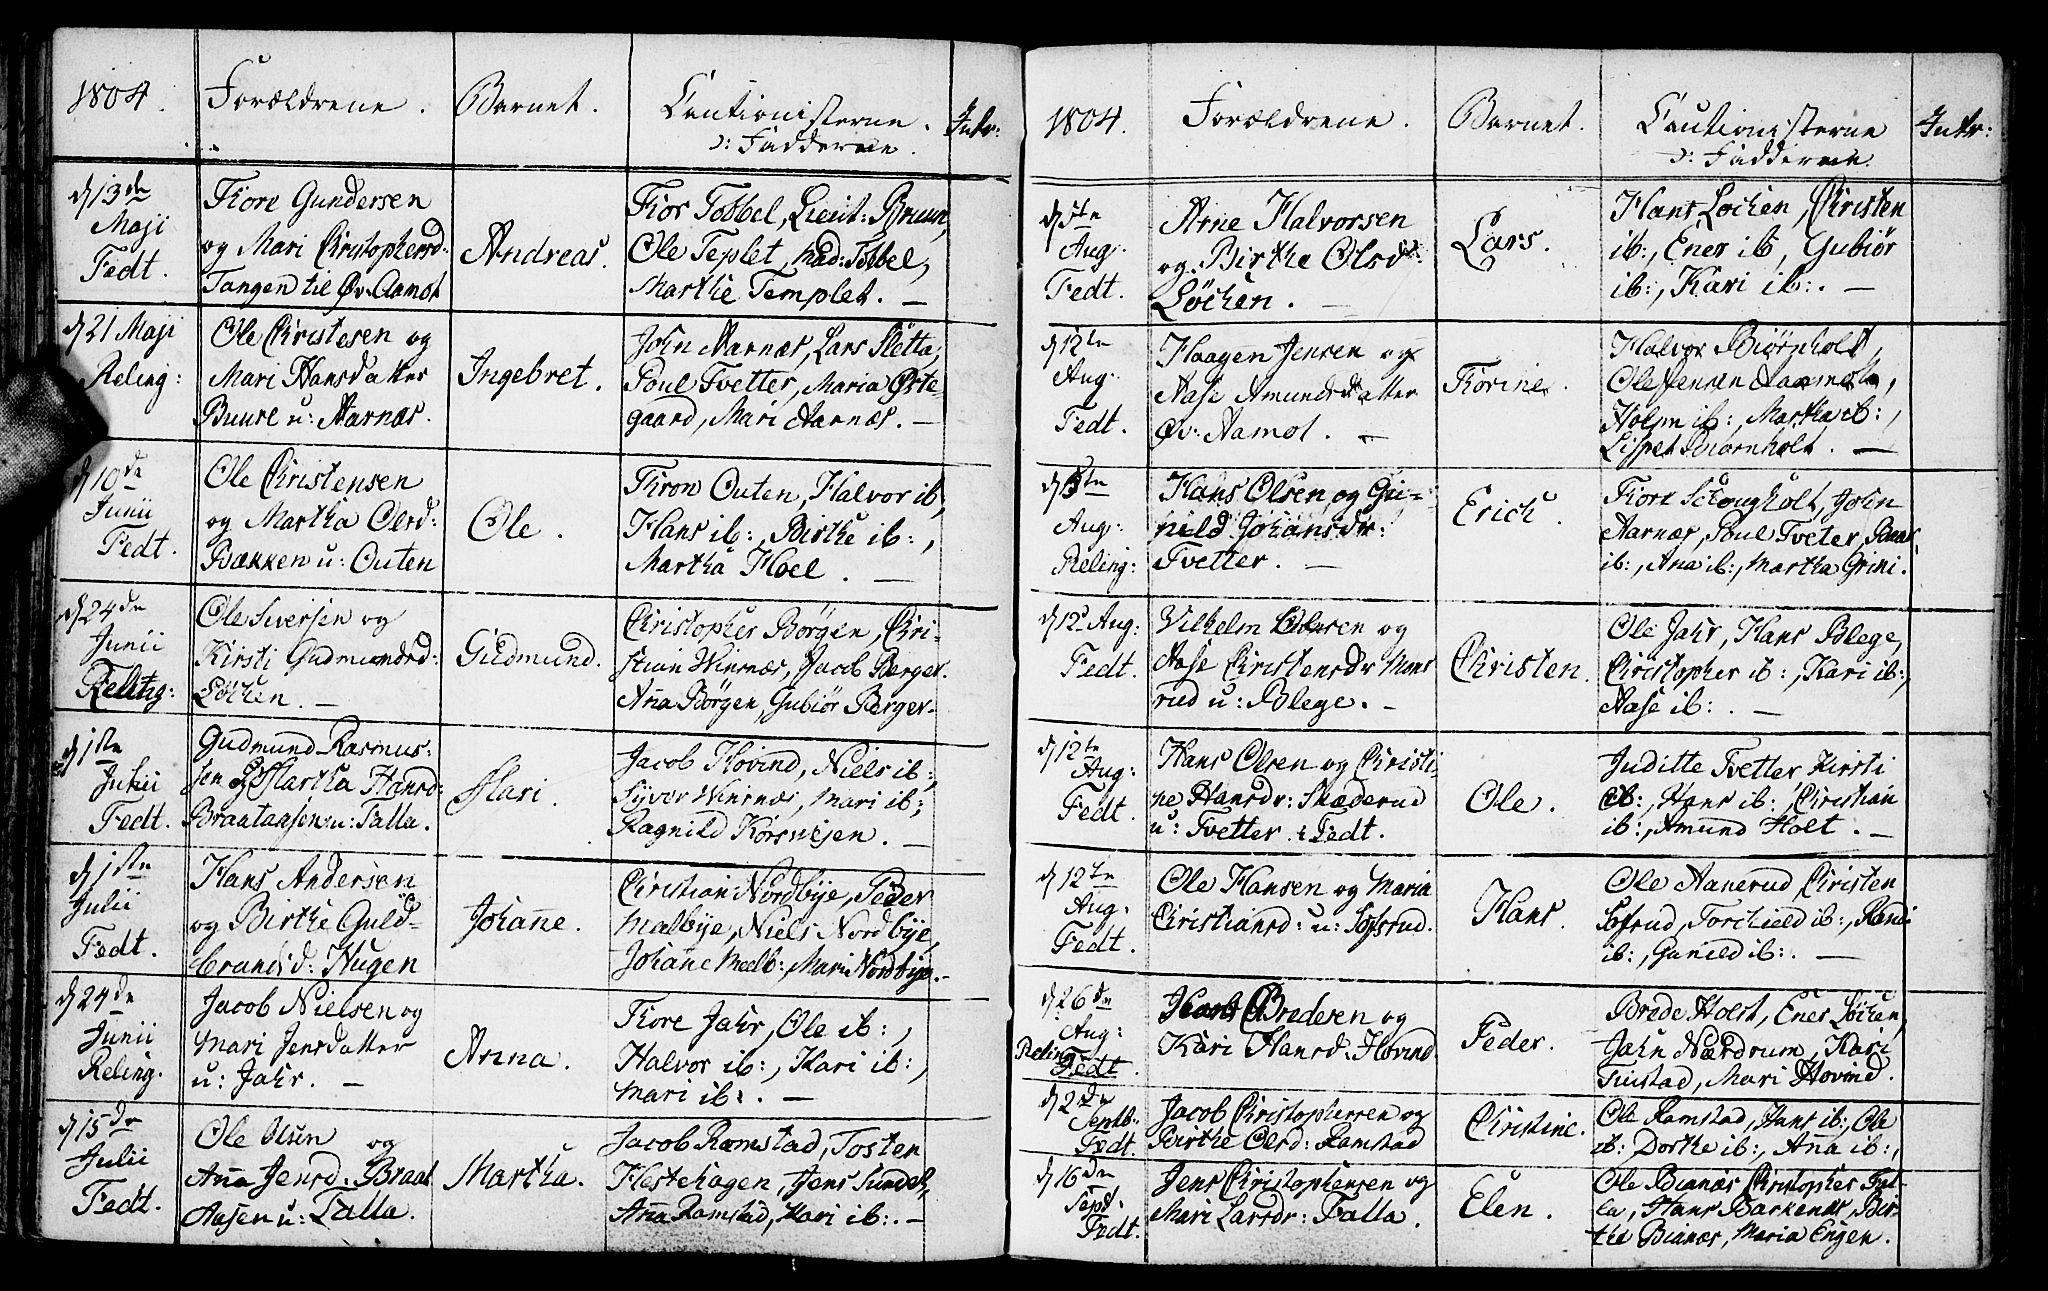 1804.
Forældrene.
Barnet.
Cautionisterne
ɔ: Fadderne.
Intr:
d 13de
Maji
Fedt.
Tore Gundersen
og Mari Christophersd:
Tangen til Øv. Aamot
Andreas.
Tor Tobbel, Lieut: Bruun,
Ole Templet, Mad: Tobbel,
Marthe Templet. —
d 21 Maji
Reling:
Ole Christesen og
Mari Hansdatter
Buure u: Aarnæs.
Ingebret.
John Aarnæs, Lars Sletta,
Poul Tvetter, Maria Øste-
gaard, Mari Aarnæs. —
d 10de
Junii
Fedt.
Ole Christensen
og Martha Olsd:
Bækken u: Outen
Ole.
Tron Outen, Halvor ib,
Hans ib:, Birthe ib:,
Martha Hoel. —
d 24de
Junii
Reling:
Ole Siversen og
Kirsti Gudmundsd:
Løchen. —
Gudmund.
Christopher Børgen, Chri-
stian Winsnæs, Jacob Berger.
Anna Børgen, Gubiør Berger-
d 1ste
Julii
Fedt.
Gudmund Rasmus-
sen og Martha Hansd:
Braataasen u: Talla.
Mari.
Jacob Hovind, Niels ib:,
Syver Winsnæs, Mari ib:,
Ragnild Korsvejen. —
d 1ste
Julii
Fedt.
Hans Andersen
og Birthe Guld-
brandsd: Hugen
Johanne.
Christian Nordbye, Peder
Malbye, Niels Nordbye,
Johane Melb:, Mari Nordbye.-
d 24de
Junii
Reling.
Jacob Nielsen og
Mari Jensdatter
u: Jahr. —
Anna.
Tore Jahr, Ole ib:,
Halvor ib:, Kari ib:,
Mari ib:. —
d 15de
Julii
Fedt.
Ole Olsen og
Anna Jensd: Braat
Aasen u: Talla.
Martha.
Jacob Ramstad, Tosten
Hestehagen, Jens Sundet,
Anna Ramstad, Kari ib:. —
1804.
Forældrene.
Barnet.
Cautionisterne
ɔ: Fadderne.
Intr:
d 5te
Aug:
Fedt.
Arne Halvorsen
og Birthe Olsd:
Løchen. —
Lars.
Hans Lochen, Christen
ib:, Ener ib, Gubiør
ib:, Kari ib:. —
d 12te
Aug:
Fedt.
Haagen Jensen og
Aase Amundsdatter
Øv: Aamot. —
Torine.
Halvor Biørnholt,
Ole Jensen Aamot,
Holm ib:, Martha ib:,
Lispet Biornholt. —
d 5te
Aug:
Reling:
Hans Olsen og Gu-
nild Johansdr:
Tvetter. —
Erich.
Tore Schougholt, John
Aarnæs, Poul Tveter,
ib:, Ana ib:, Martha Grini.
d 12 Aug:
Fedt.
Vilhelm Olsen og
Aase Christensdr Mons
rud u: Blege. -
Christen.
Ole Jahr, Hans Blege,
Christopher ib:, Kari ib:,
Aase ib:. —
d 12te
Aug:
Fedt.
Hans Olsen og Christi-
ne Hansdr: Skæderud
u: Tvetter i Fedt.
Ole.
Juditte Tvetter Kirsti
ib:, Hans ib:, Christian
ib:, Amund Holt. —
d 12te
Aug.
Fedt.
Ole Hansen og Maria
Christiansd: u: Sofsrud.
Hans.
Ole Aanerud Christen
Sofrud, Torchield ib:, Randi
ib:, Gunild ib:. —
d 26de
Aug:
Reling:
Fedt.
Bredesen og
Kari Hansd. Hovind
Peder.
Brede Holst, Ener Løchen,
John Nærdrum, Kari
Tiustad, Mari Hovind.
d 2de
Septb:
Fedt.
Jacob Christophersen og
Birthe Olsd: Ramstad
Christine.
Ole Ramstad, Hans ib:, Ole
ib: Dorthe ib:, Anna ib:,
d 16de
Sept:
Fedt.
Jens Christophersen og
Mari Larsdr: Falla.
Elen.
Ole Bianæs Christopher Fal-
la, Hans Barkenæs, Bir-
the Bianæs, Maria Engen.